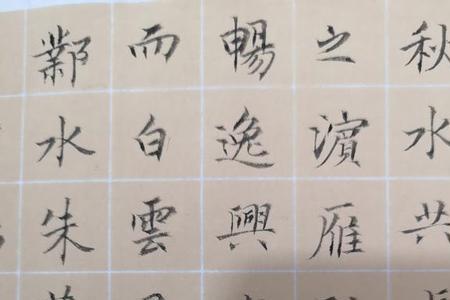 秋水共
之濵雁
暢逸興
而白雲
鄴水朱